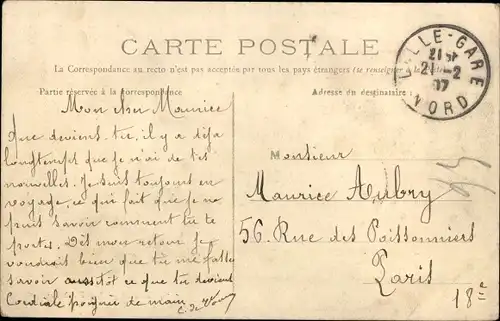 CARTE POSTALE
La Correspondance au recto n'est pas acceptée par tous les pays étrangers (se renseigner à la
Partie réservée à la correspondance
Adresse du destinataire
LILLE-GARE
21
21-2
07
NORD
Mon cher Maurice
Que deviens tu, il y a déja
longtemps que je n'ai de tes
nouvelles. Je suis toujours en
voyage, ce qui fait que je ne
puis savoir comment tu te
portes. Dès mon retour je
voudrait bien que tu me fasses
savoir aussitôt ce que tu deviens
Cordiale poignée de main
Monsieur
Maurice Aubry
56, Rue des Poissonniers
Paris
18e